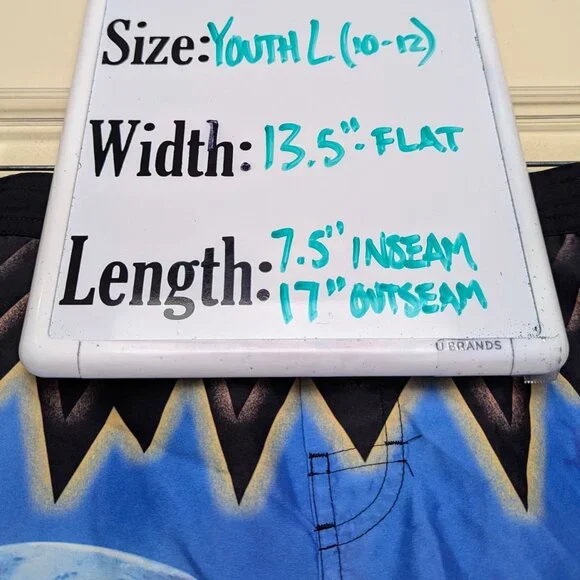 Size: YOUTH L (10-12)
Width: 13.5"- FLAT
Length: 7.5" INSEAM
17" OUTSEAM
U BRANDS